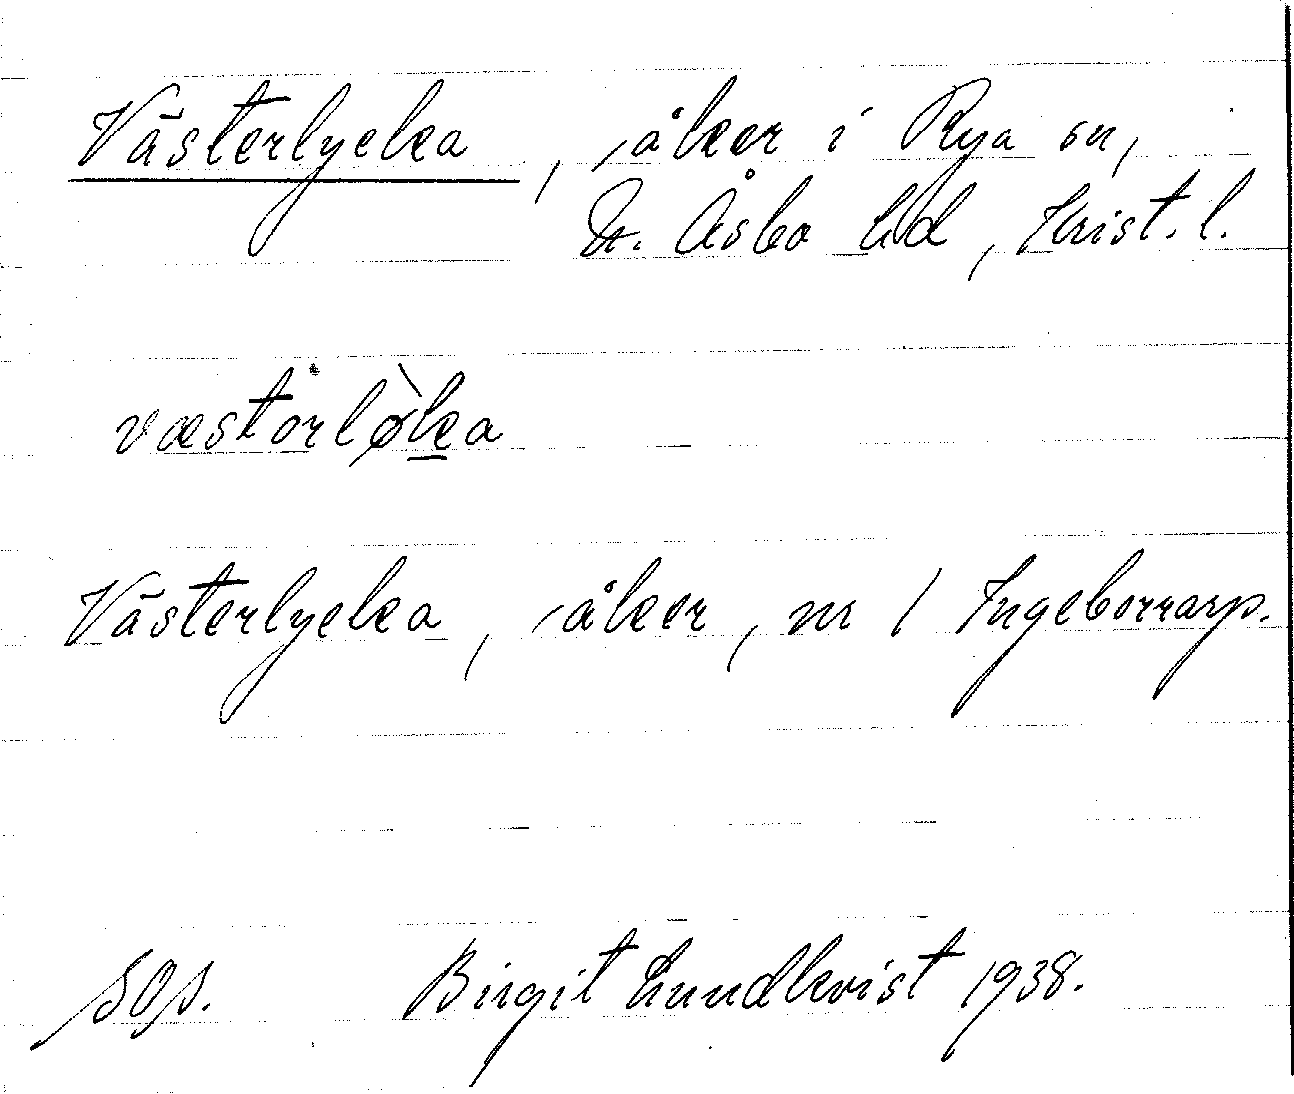 Västerlycka, åker i Rya sn,
N. Åsbo hd, Krist. l.
væstərlø̀ka
Västerlycka, åker, nr 1 Ingeborrarp.
SOS. Birgit Lundkvist 1938.